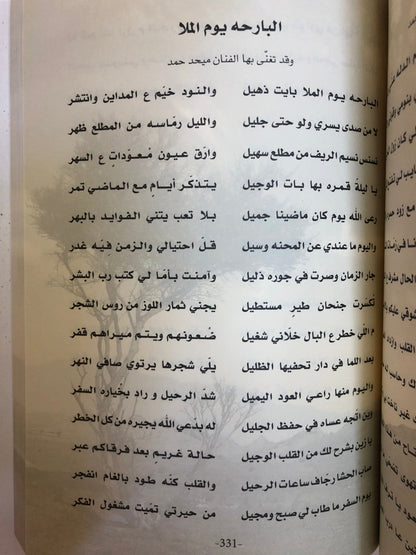 البارحه يوم الملا
وقد تغنّى بها الفنان ميحد حمد
البارحه يوم الملا بايت ذهيل والنود خيّم ع المداين وانتشر
لا من صدى يسري ولو حتى جليل والليل رمّاسه من المطلع ظهر
نسنس نسيم الريف من مطلع سهيل وازق عيون معوّدات ع السهر
يا ليلة قمره بها بات الوجيل يتذكّر أيام مع الماضي تمر
رعى الله يوم كان ماضينا جميل بلا تعب يتني الفوايد بالبهر
واليوم ما عندي عن المحنه وسيل قلّ احتيالي والزمن فيه غدر
جار الزمان وصرت في جوره ذليل وآمنت بامّا لي كتب رب البشر
تكسّرت جنحان طير مستطيل يجني ثمار اللوز من روس الشجر
م اللي خطر ع البال خلّاني شغيل ضعونهم ويتم ميراهم قفر
بعد اللما في دار تحفيها الظليل يلّي شجرها يرتوي صافي النهر
واليوم منها راعي العود اليميل شدّ الرحيل و راد بخياره السفر
وين اتجه عساه في حفظ الجليل له بدعي الله يجيره من كل الخطر
يا زين بشرح لك من القلب الوجيل حالة غريم بعد فرقاكم عبر
صاب الحشا رجّاف ساعات الرحيل والقلب كنّه طود بالغام انفجر
يوم السفر ما طاب لي صبح ومجيل من حيرتي تمّيت مشغول الفكر
-331-